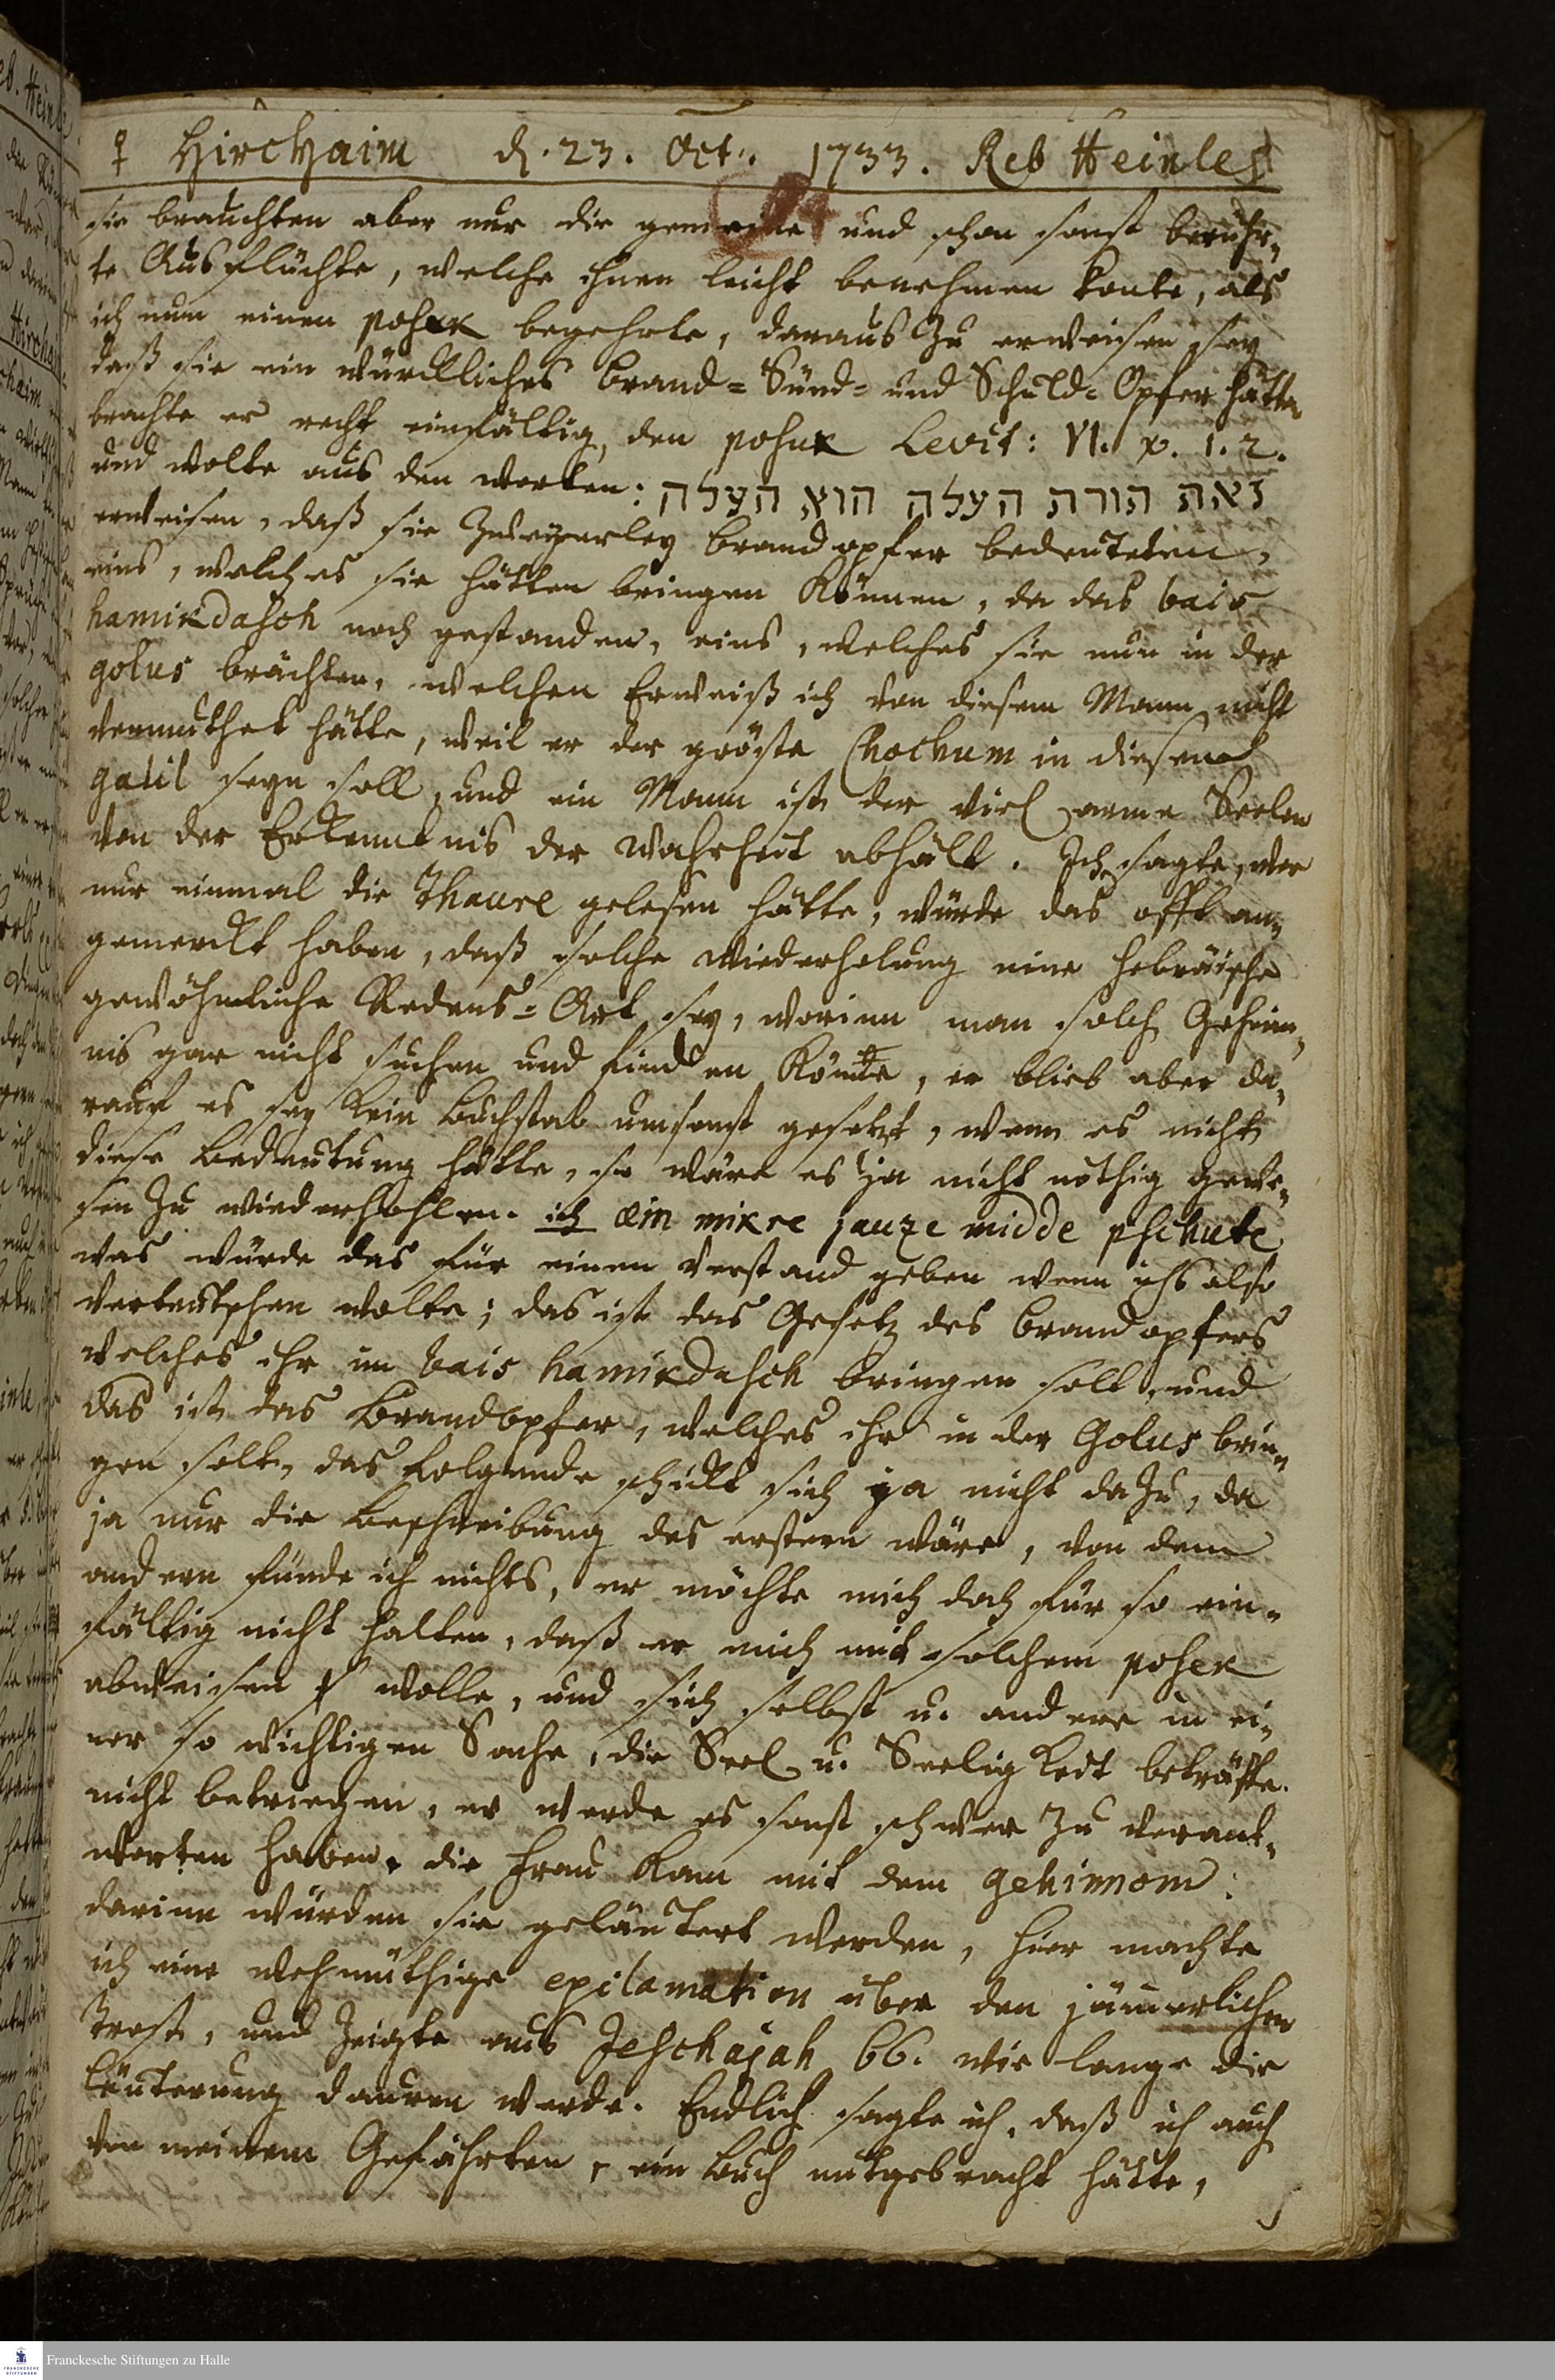 ♀ Hirchaim d. 23. Oct. 1733. Reb Heinle
sie brauchten aber nur die gemeine und schon sonst berühr-
te Ausflüchte, welche ihnen leicht benehmen konte, als
ich nun einen posuk begehrte, daraus zu erweisen sey
daß sie ein würckliches Brand- Sünd- und Schuld-Opfer hätten
brachte er recht einfältig, den posuk Levit: VI. v. 1. 2.
und wolte aus den worten: זאת תורת העלה הוא העלה
erweisen, daß sie Zweyerley brandopfer bedeuteten,
eins, welches sie hätten bringen können, da das bais
hamikdasch noch gestanden, eins, welches sie nun in der
golus brächten, welchen Erweiß ich von diesem Mann nicht
vermuthet hätte, weil er der gröste Chochum in diesem
galil seyn soll, und ein Mann ist, der viel arme Seelen
von der Erkenntnis der Wahrheit abhält. Ich sagte, wer
nur einmal die Thaure gelesen hätte, würde das offt an-
gemerckt haben, daß solche Wiederholung eine hebräische
gewöhnliche Redens-Art sey, worinn man solch Geheim-
nis gar nicht suchen und finden könte, er blieb aber da-
rauf es sey kein Buchstab umsonst gesetzt, wenn es nicht
diese Bedeutung hätte, so wäre es ja nicht nöthig gewe-
sen zu wiederhohlen. ich ein mikre jauze midde pschute
was würde das für einen verstand geben wenn ichs also
verteutschen wolte; das ist das Gesetz des brandopfers
welches ihr im bais hamikdasch bringen solt, und
das ist das Brandopfer, welches ihr in der Golus brin-
gen solt, das folgende schickt sich ja nicht dazu, da
ja nur die Beschreibung des erstern wäre, von dem
andern fünde ich nichts, er möchte mich doch für so ein-
fältig nicht halten, daß er mich mit solchem posek
abweisen wolle, und sich selbst u. andere in ei-
ner so wichtigen Sache, die Seel u. Seeligkeit beträffe.
nicht betriegen, er werde es sonst schwer zu verant-
worten haben. die Frau kam mit dem gehinnom:
darinn würden sie geläutert werden, hier machte
ich eine wehmüthige exclamation über den jämerlichen
Trost, und zeigte aus Jeschajah 66. wie lange die
Läuterung dauren werde. Endlich sagte ich, daß ich auch
von meinem Gefährten, ein Buch mitgebracht hätte,
Franckesche Stiftungen zu Halle